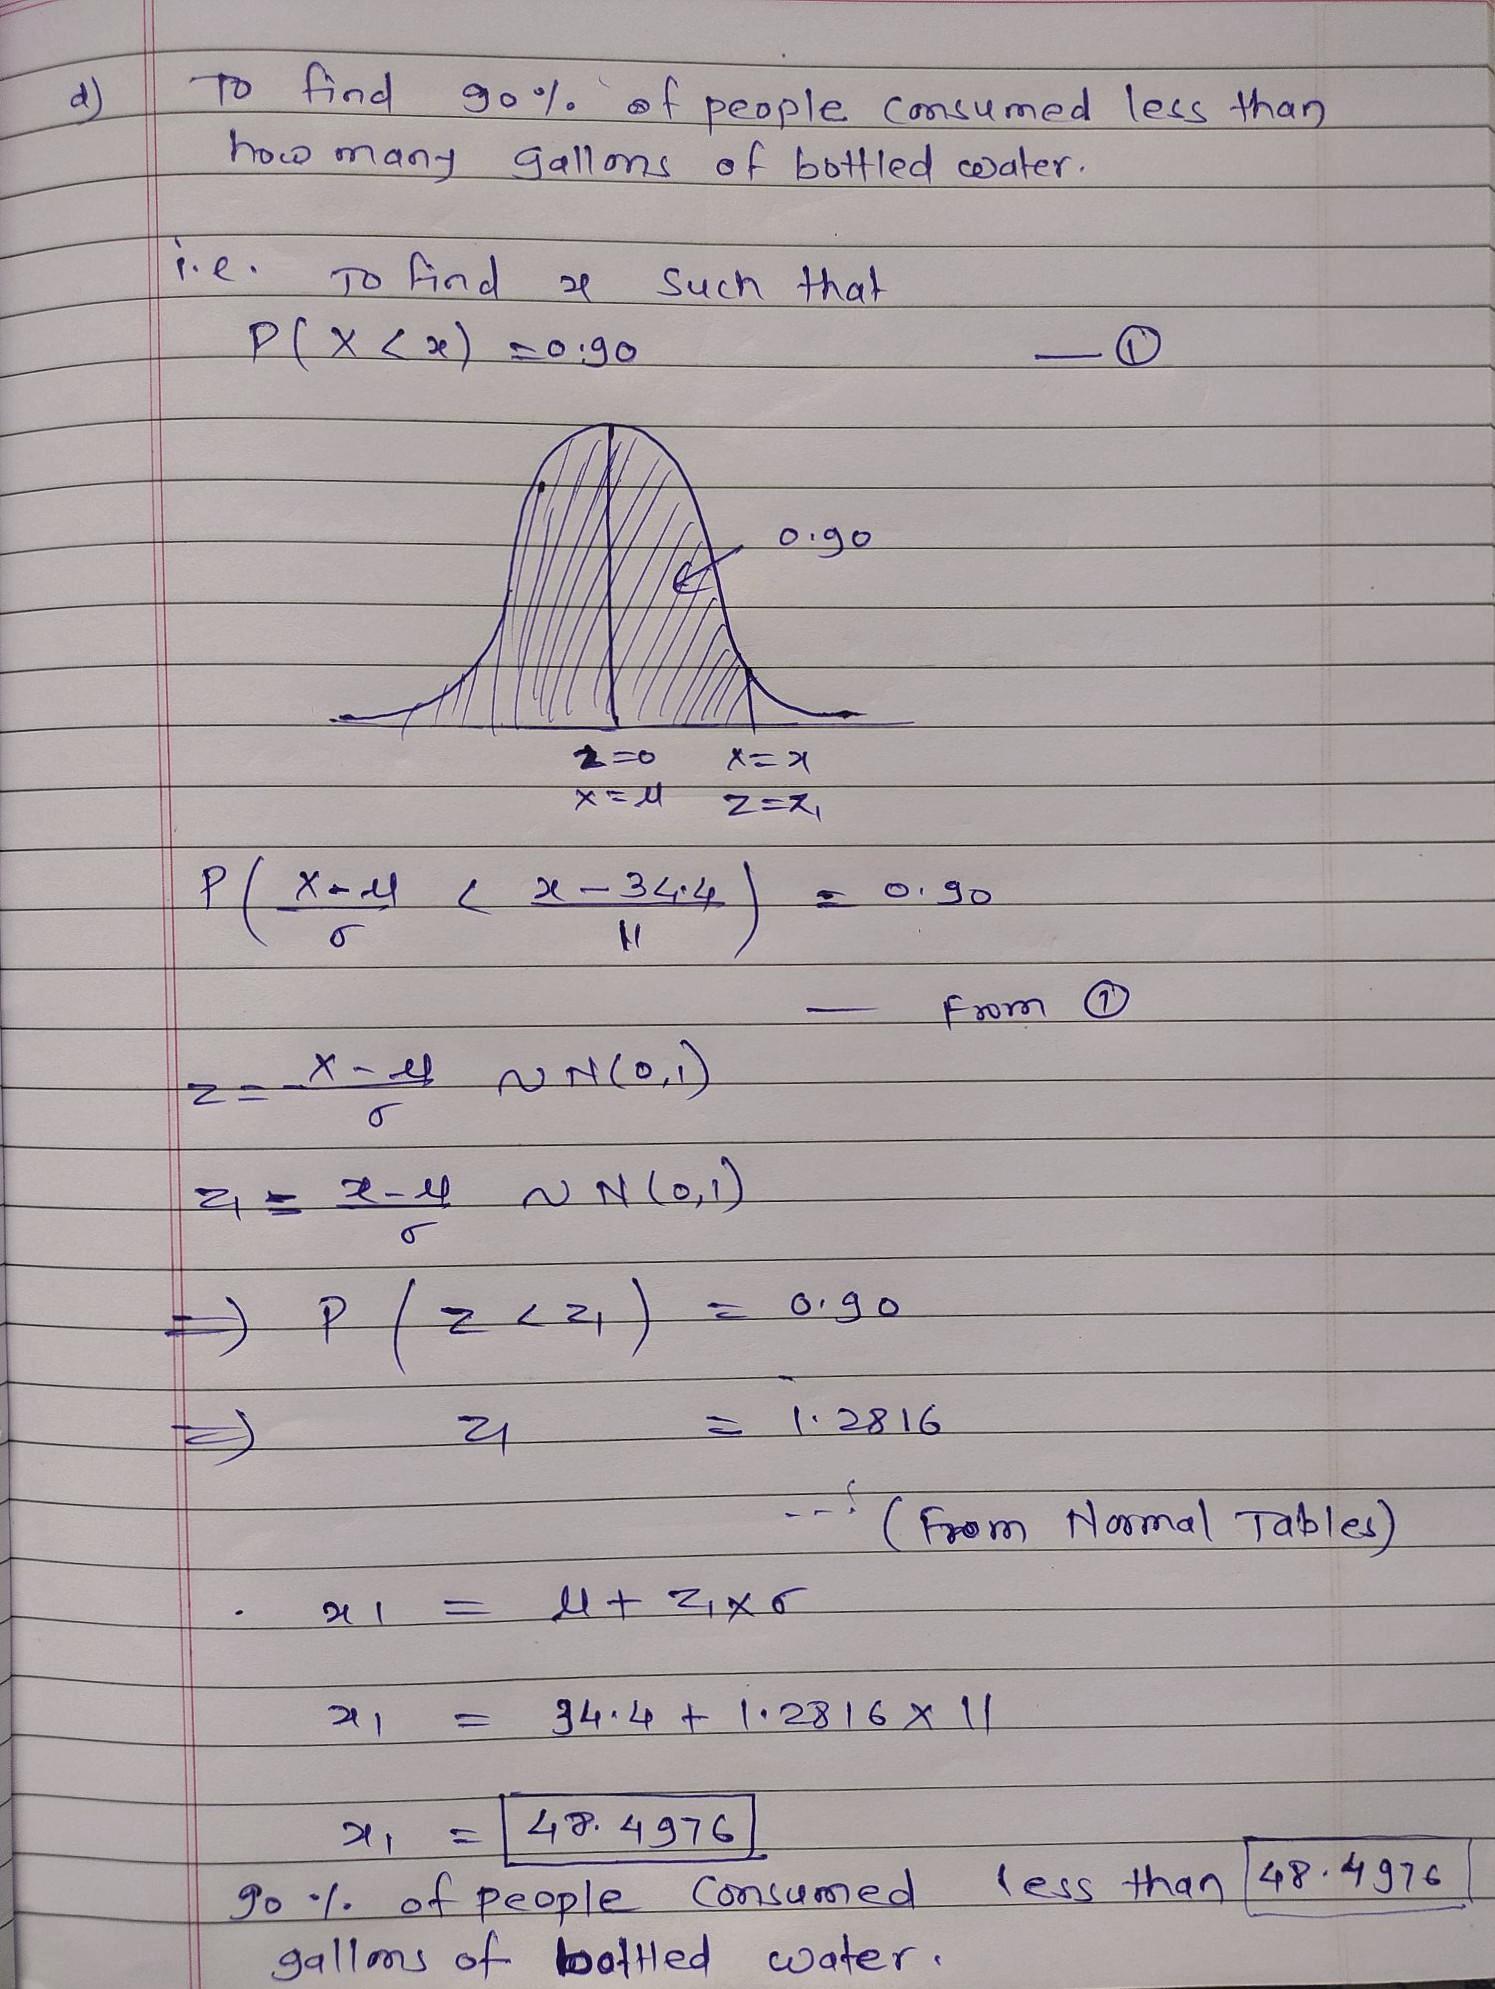 d) To find 90% of people consumed less than
how many gallons of bottled water.
i.e. To find x such that
P(X < x) = 0.90 — ①
0.90
z=0 X=x
X=μ Z=z₁
P( (X-μ)/σ < (x-34.4)/11 ) = 0.90
— From ①
Z = (X-μ)/σ ~ N(0,1)
z₁ = (x-μ)/σ ~ N(0,1)
=> P(Z < z₁) = 0.90
=> z₁ = 1.2816
(From Normal Tables)
x₁ = μ + z₁×σ
x₁ = 34.4 + 1.2816 × 11
x₁ = 48.4976
90% of people consumed less than 48.4976
gallons of bottled water.